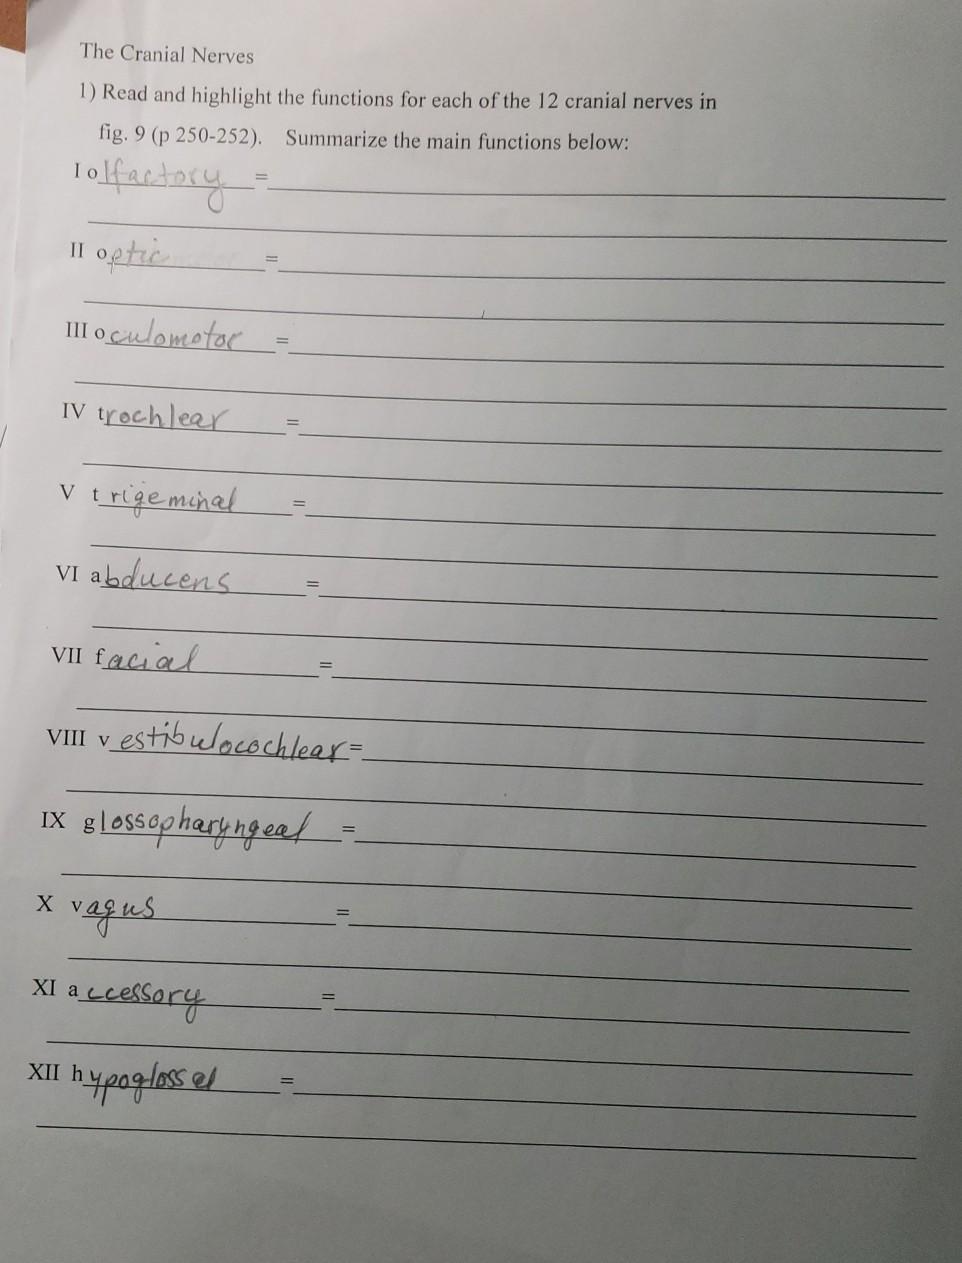 The Cranial Nerves
1) Read and highlight the functions for each of the 12 cranial nerves in
fig. 9 (p 250-252). Summarize the main functions below:
I olfactory =
II optic =
III oculomotor =
IV trochlear =
V trigeminal =
VI abducens =
VII facial =
VIII vestibulocochlear =
IX glossopharyngeal =
X vagus =
XI accessory =
XII hypoglossal =